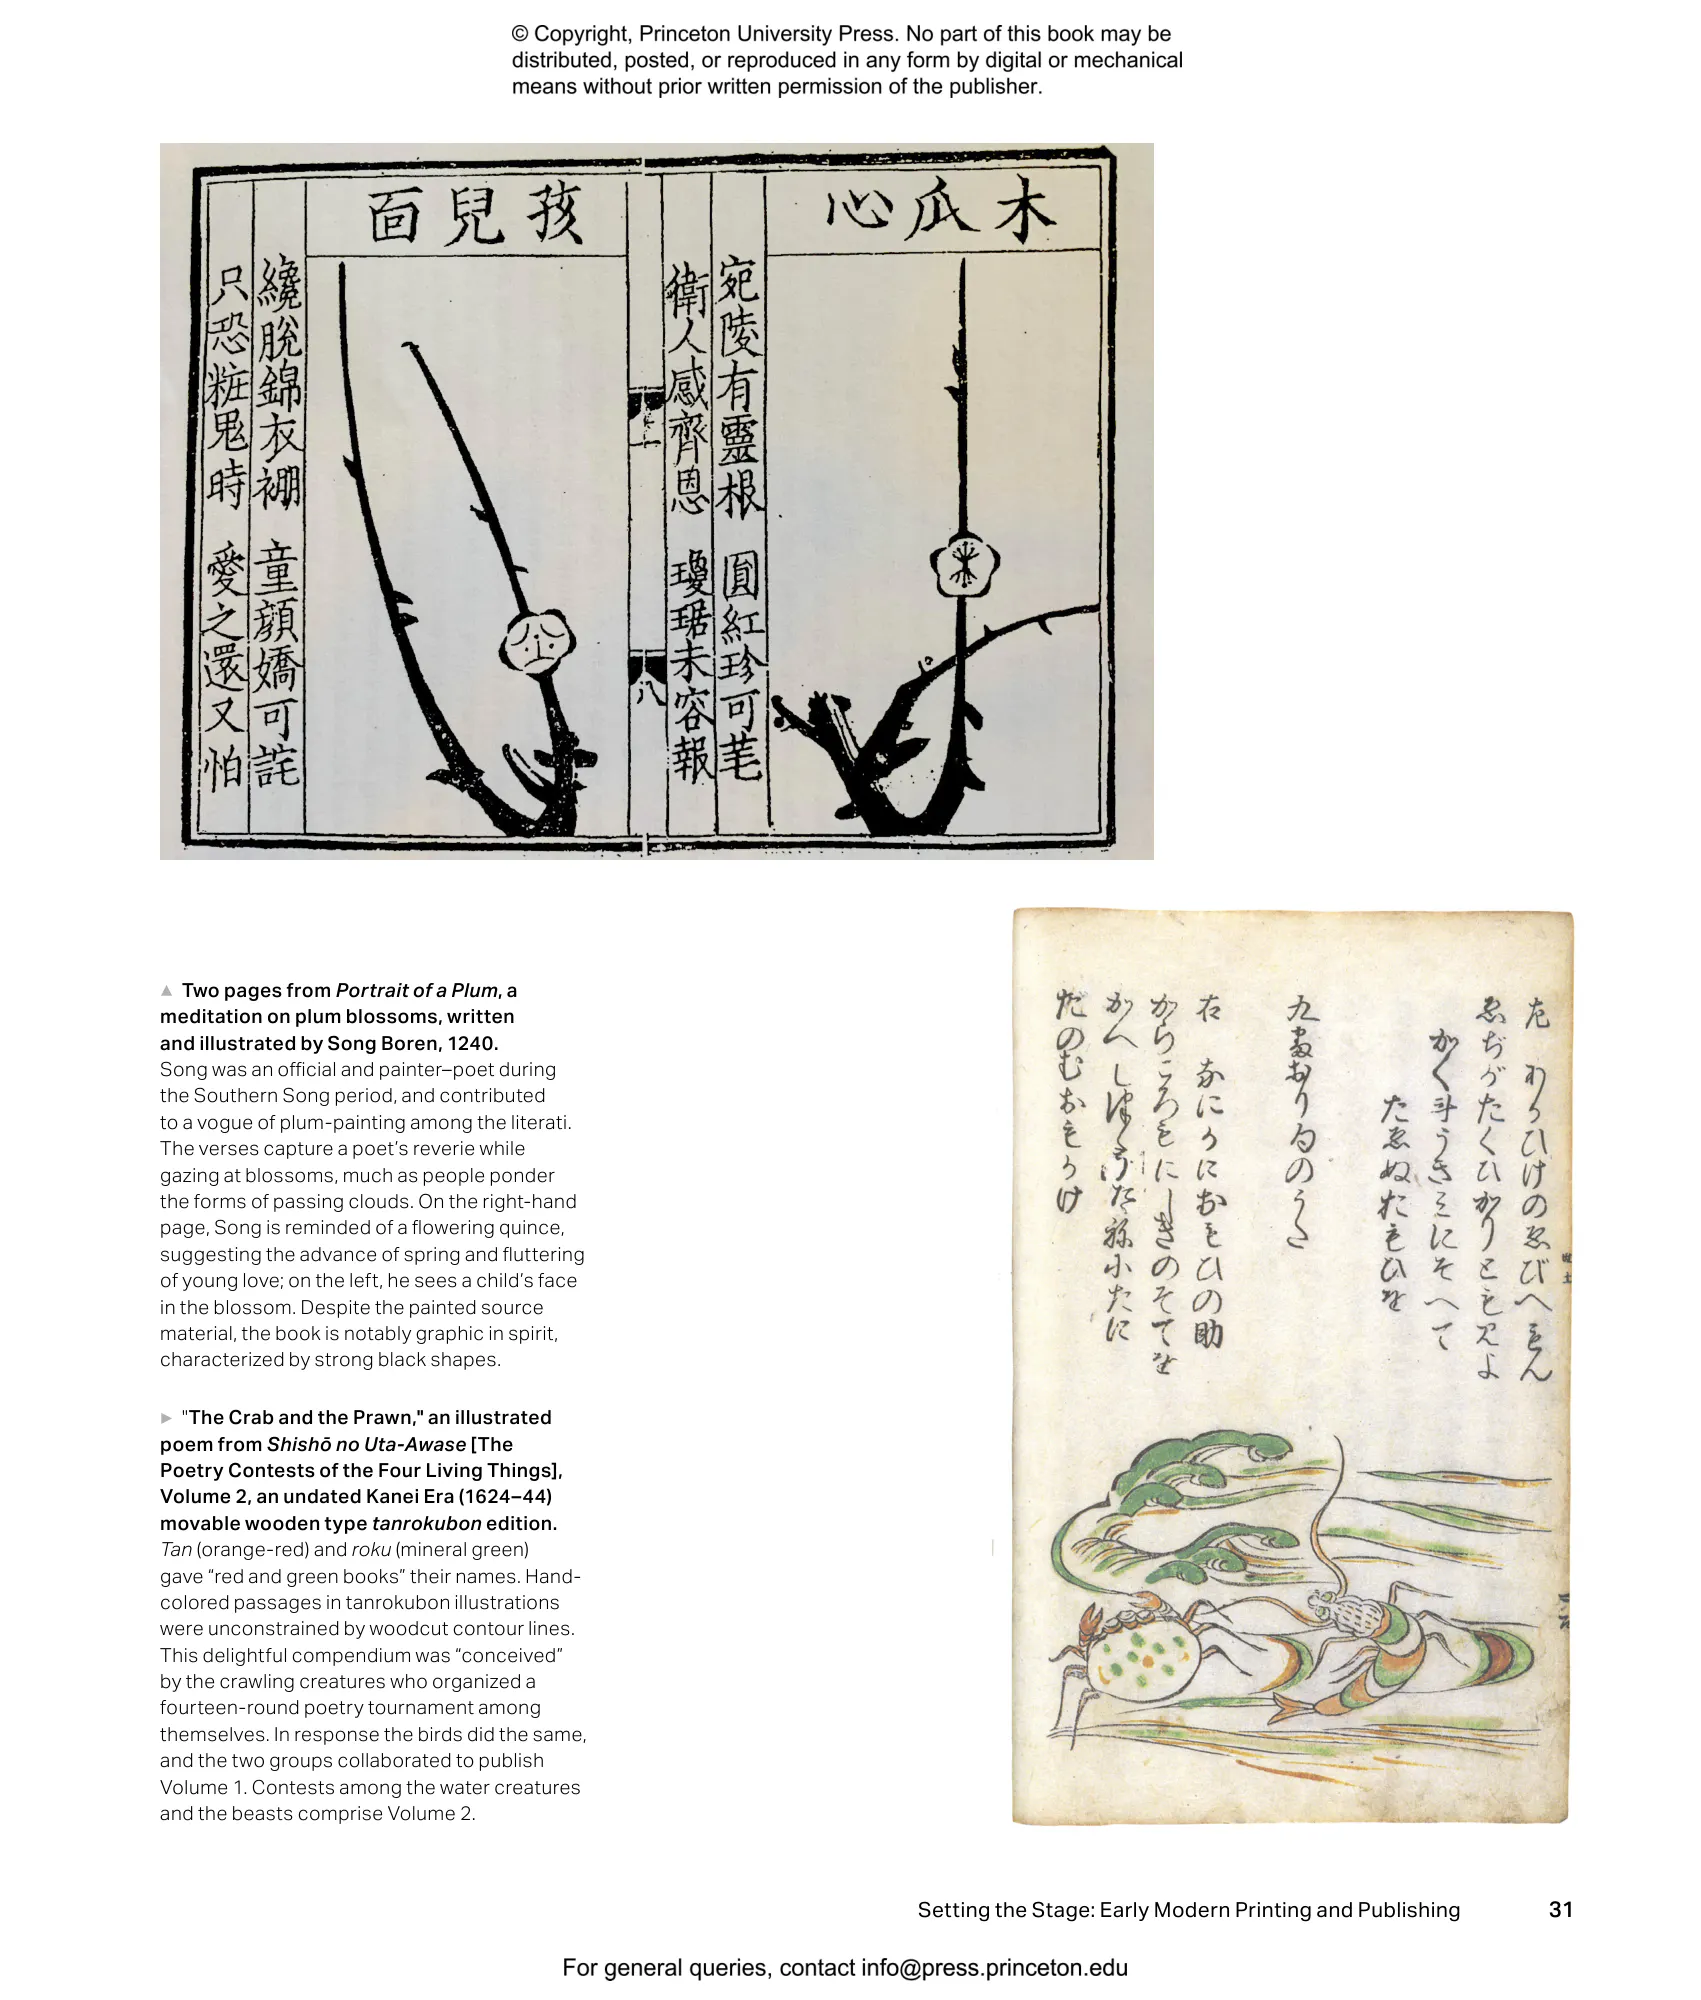 © Copyright, Princeton University Press. No part of this book may be
distributed, posted, or reproduced in any form by digital or mechanical
means without prior written permission of the publisher.
木瓜心
宛陵有靈根 圓紅珍可芼
衛人感齊恩 瓊琚未容報
八
孩兒面
纔脫錦衣 童顔嬌可詫
只恐粧鬼時 愛之還又怕
▲ Two pages from Portrait of a Plum, a
meditation on plum blossoms, written
and illustrated by Song Boren, 1240.
Song was an official and painter–poet during
the Southern Song period, and contributed
to a vogue of plum-painting among the literati.
The verses capture a poet’s reverie while
gazing at blossoms, much as people ponder
the forms of passing clouds. On the right-hand
page, Song is reminded of a flowering quince,
suggesting the advance of spring and fluttering
of young love; on the left, he sees a child’s face
in the blossom. Despite the painted source
material, the book is notably graphic in spirit,
characterized by strong black shapes.
► "The Crab and the Prawn," an illustrated
poem from Shishō no Uta-Awase [The
Poetry Contests of the Four Living Things],
Volume 2, an undated Kanei Era (1624–44)
movable wooden type tanrokubon edition.
Tan (orange-red) and roku (mineral green)
gave “red and green books” their names. Hand-
colored passages in tanrokubon illustrations
were unconstrained by woodcut contour lines.
This delightful compendium was “conceived”
by the crawling creatures who organized a
fourteen-round poetry tournament among
themselves. In response the birds did the same,
and the two groups collaborated to publish
Volume 1. Contests among the water creatures
and the beasts comprise Volume 2.
左 ひけのゑびへもん
かく斗うきミにそへて
九番おり句のうた
右 おもひの助
からころもにしきのそてを
たのむおもかけ
Setting the Stage: Early Modern Printing and Publishing 31
For general queries, contact info@press.princeton.edu